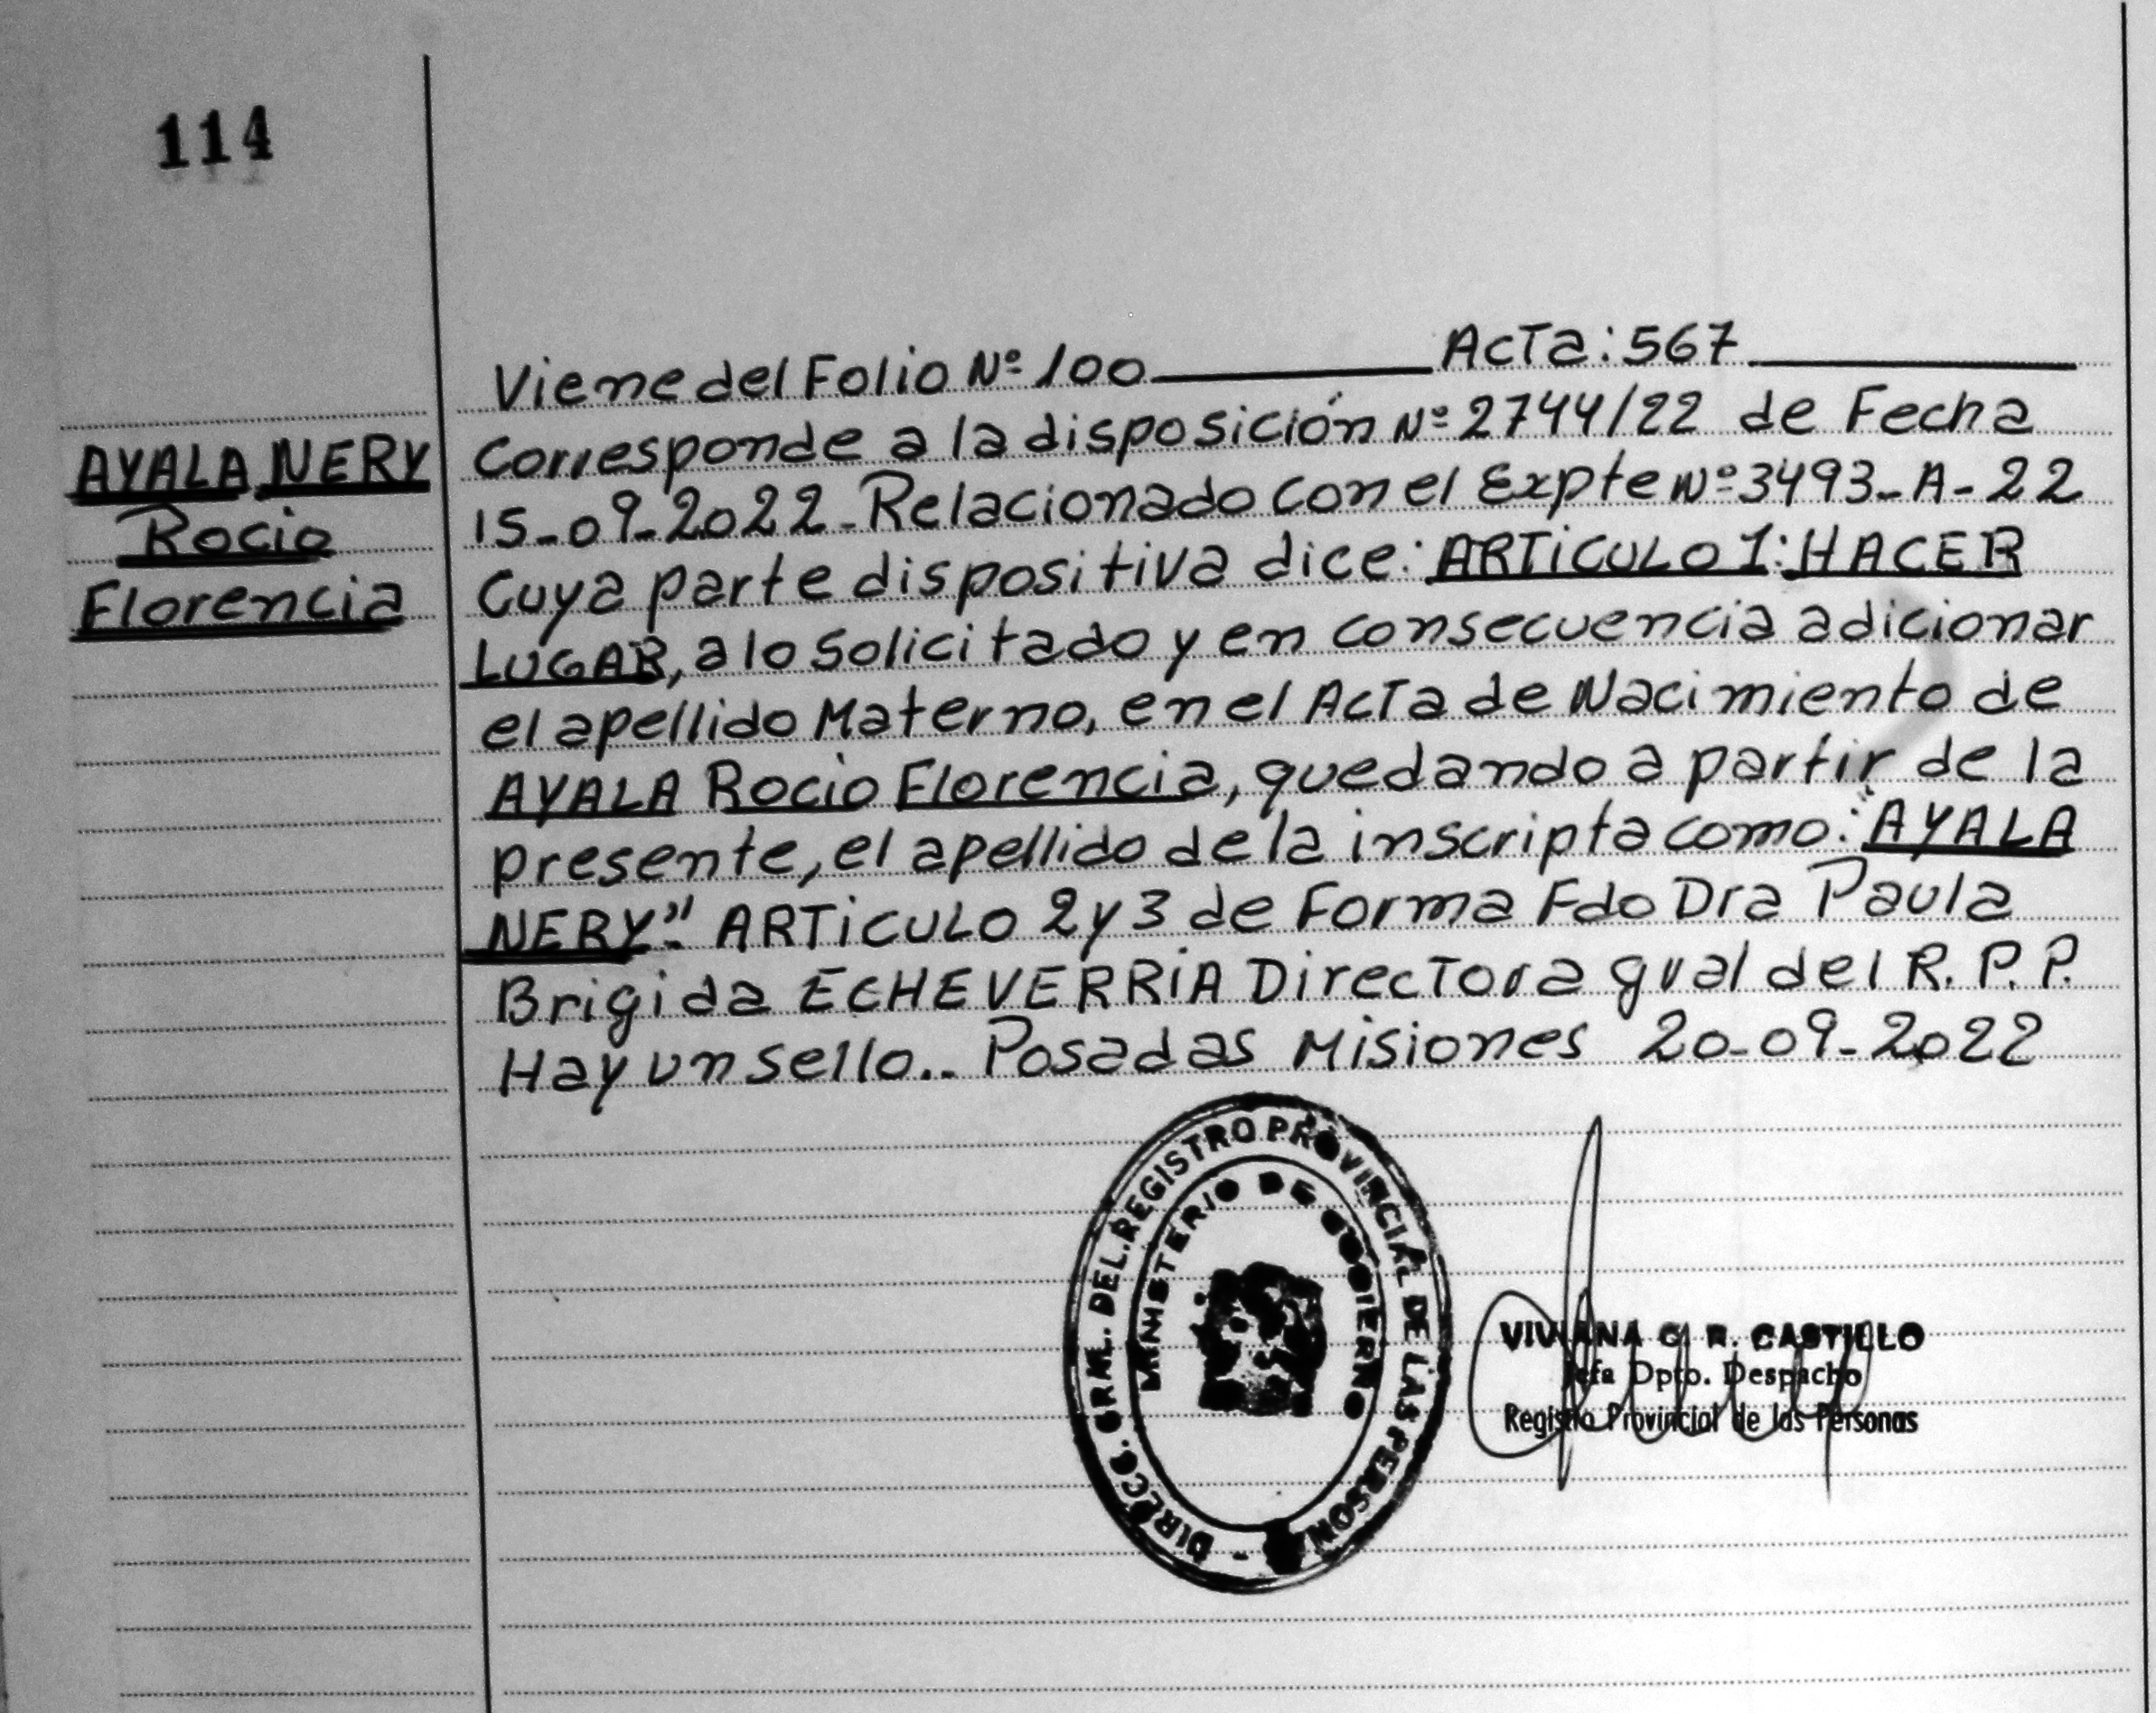 114
AYALA NERY
Rocio
Florencia
Viene del Folio Nº 100 ActA: 567
Corresponde a la disposición Nº 2744/22 de Fecha
15-09-2022-Relacionado con el Expte Nº 3493-A-22
Cuya parte dispositiva dice: ARTiCULO 1: HACER
LUGAR, a lo solicitado y en consecuencia adicionar
el apellido Materno, en el ActA de Nacimiento de
AYALA Rocio Florencia, quedando a partir de la
presente, el apellido de la inscripta como: "AYALA
NERY". ARTiCULO 2 y 3 de Forma Fdo Dra Paula
Brigida ECHEVERRiA Directora gral del R.P.P.
Hay un sello.- Posadas Misiones 20-09-2022
DIRECC. GRAL. DEL REGISTRO PROVINCIAL DE LAS PERSON
MINISTERIO DE GOBIERNO
VIVIANA G R. CASTILLO
Jefa Dpto. Despacho
Registro Provincial de las Personas